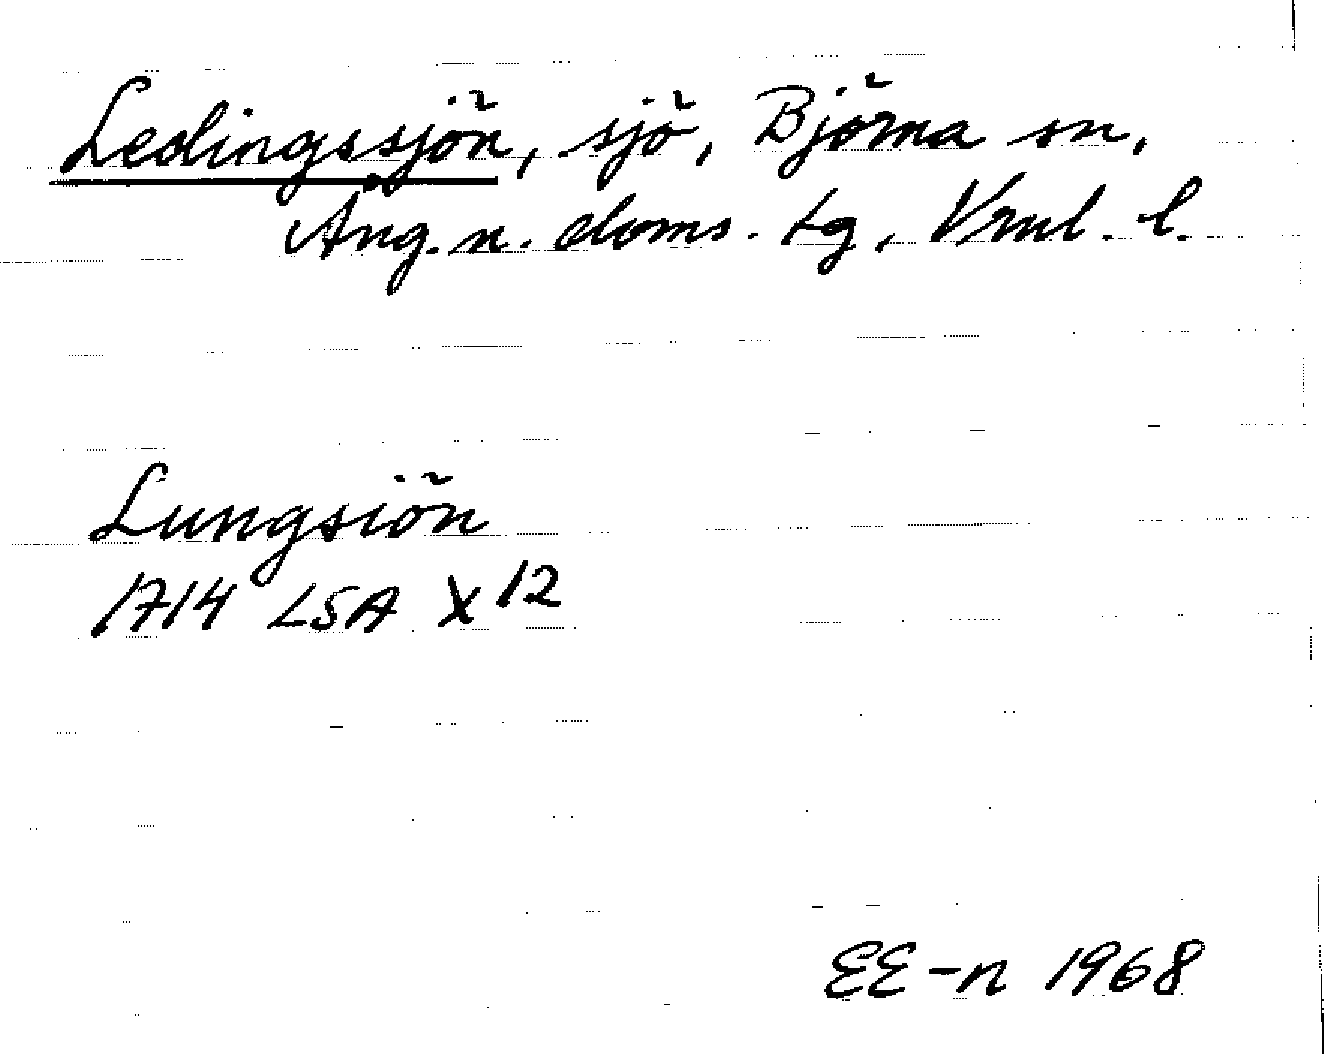 Ledingssjön, sjö, Björna sn,
Ång. n. doms. tg, Vrnl. l.
Lungsiön
1714 LSA X 12
EE-n 1968